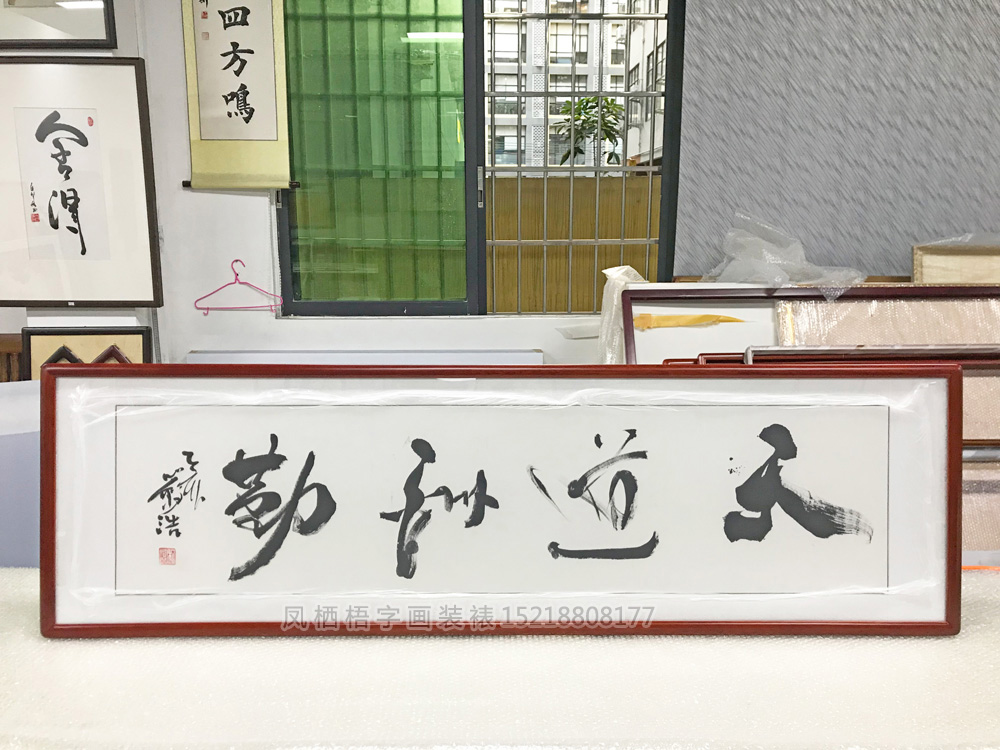 四方鳴
舍得
天道酬勤
凤栖梧字画装裱15218808177